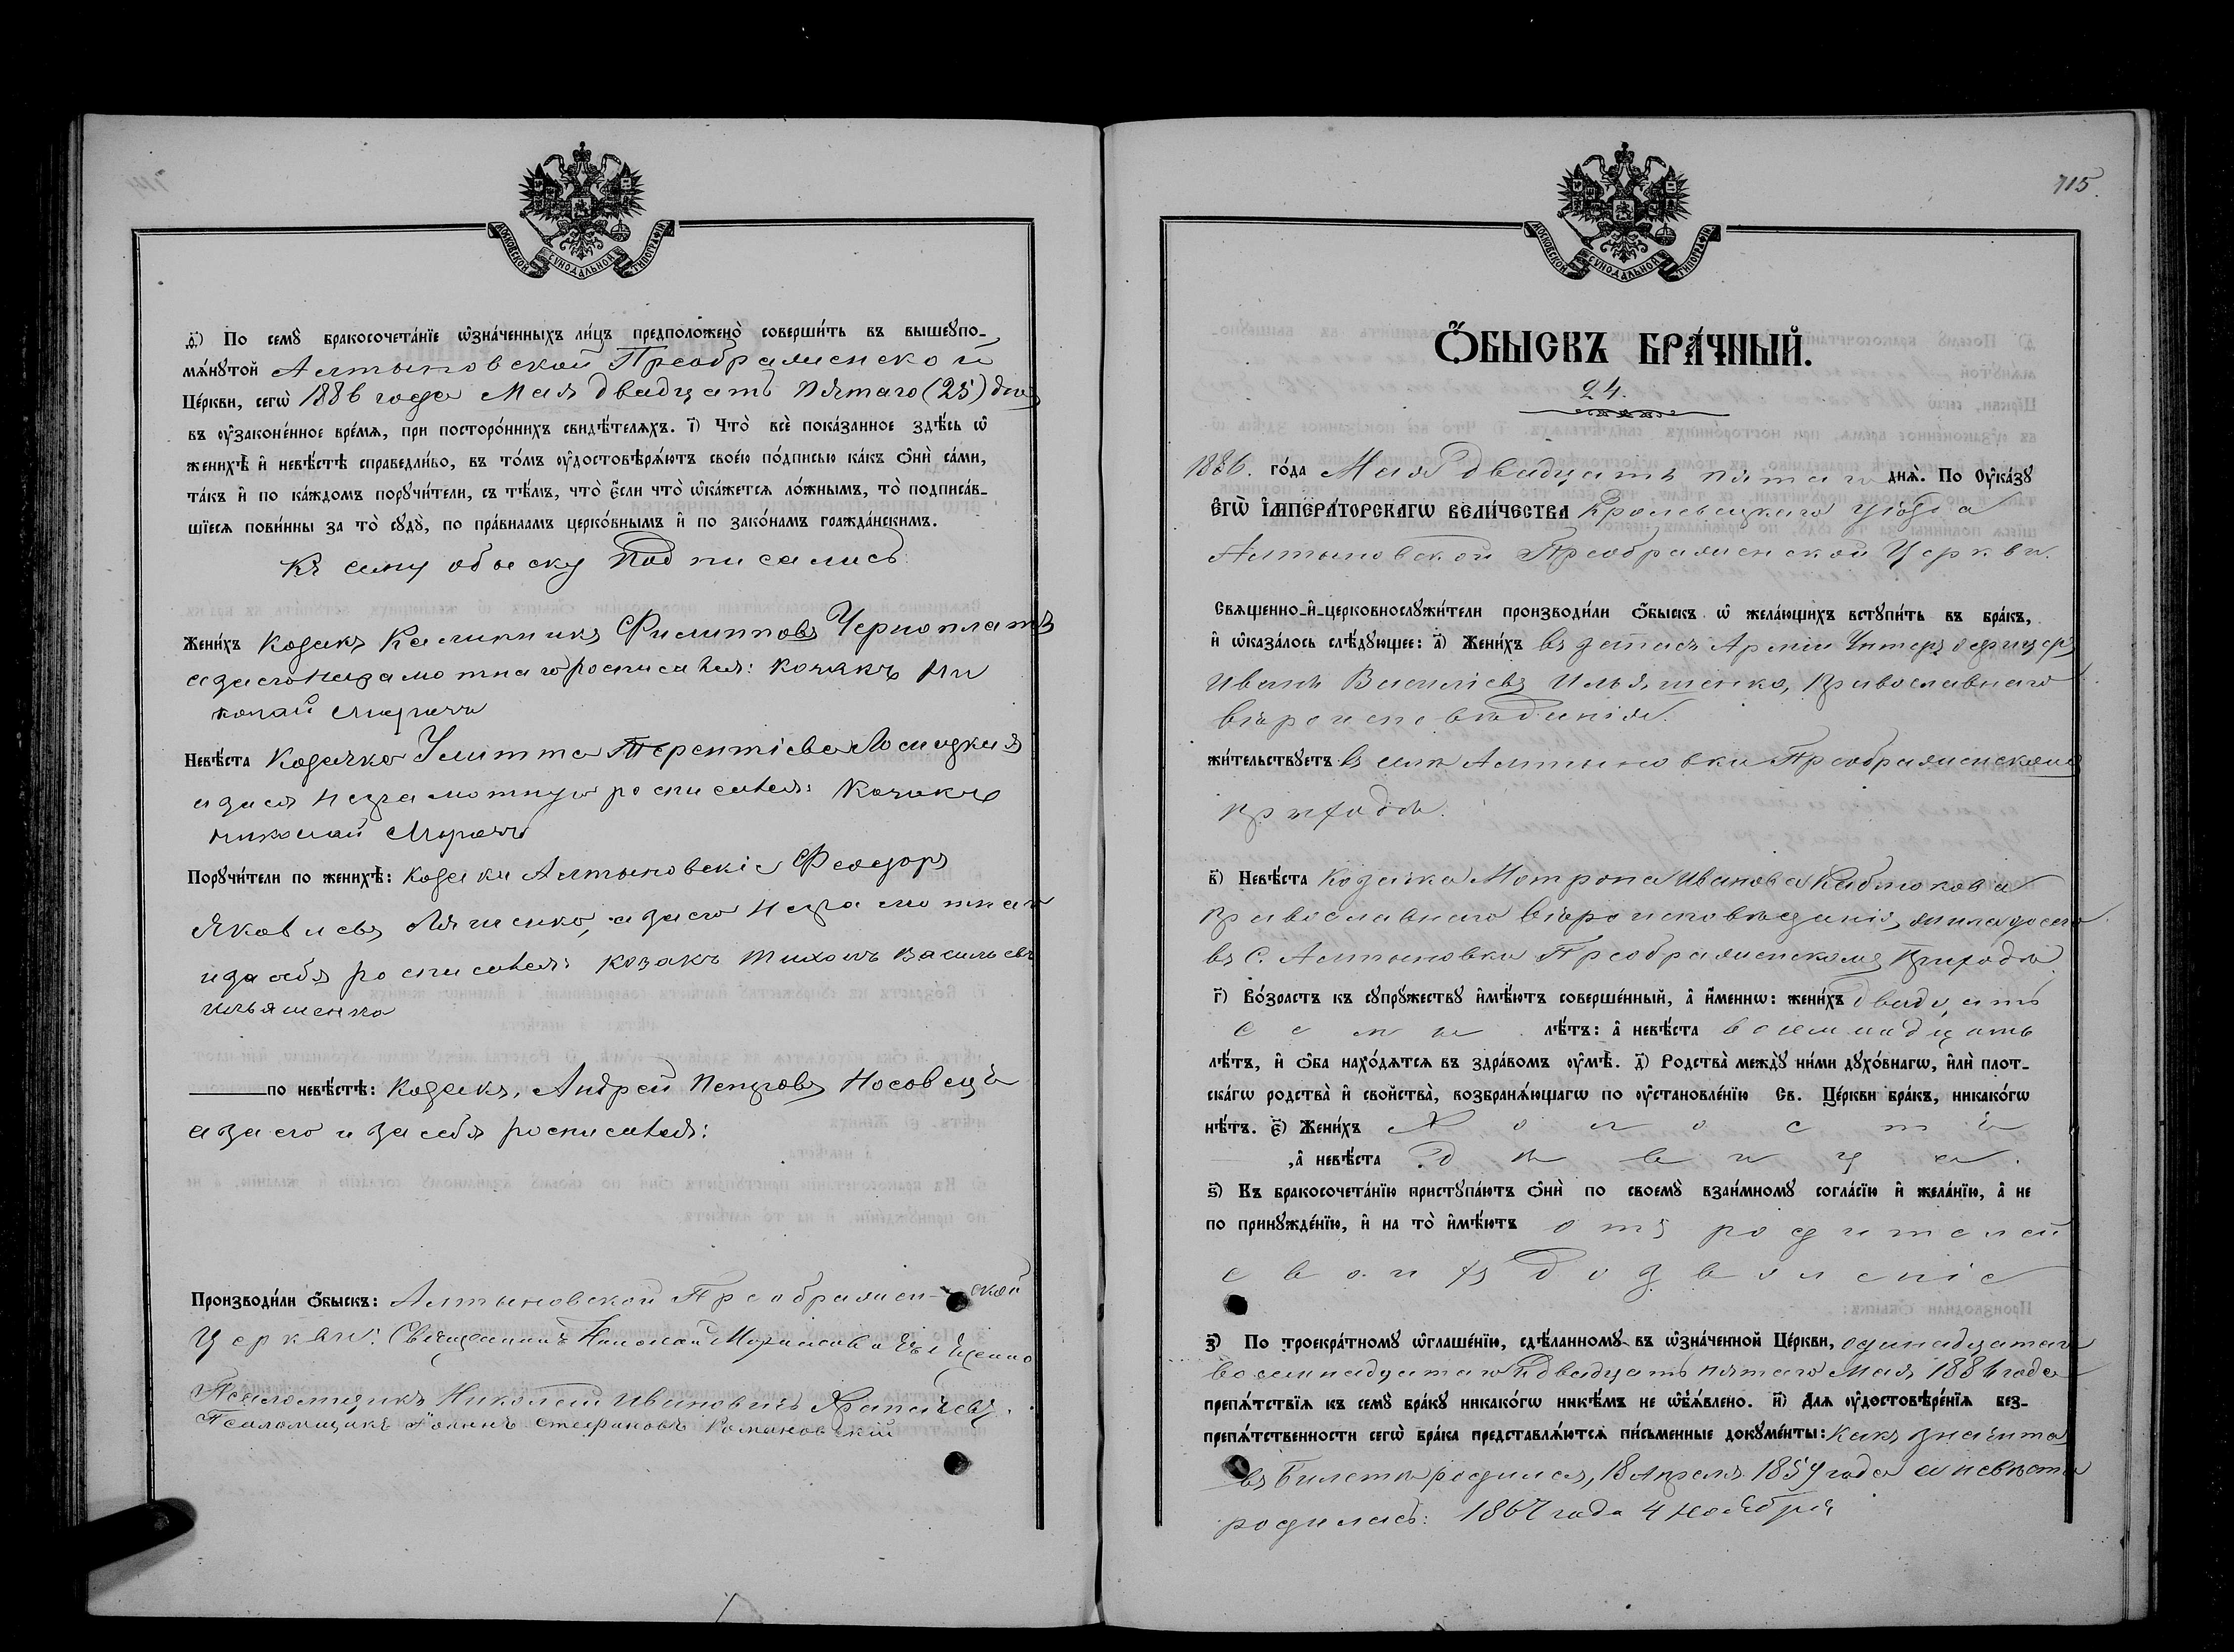 МОСКОВСКОЙ СѴНОДАЛЬНОЙ ТИПОГРАФІИ
ѳ҃) По семꙋ̀ бракосочета́нїе ѡ҆зна́ченныхъ ли́цъ предположено̀ соверши́ть въ вышеꙋпо-
мѧ́нꙋтой Алтыновской Преображенской
Це́ркви, сегѡ̀ 1886 года Мая двадцать пятаго (25) дня
въ ᲂу҆законе́нное вре́мѧ, при посторо́ннихъ свидѣ́телѧхъ. і҃) Что̀ всѐ пока́занное здѣ́сь ѡ҆
женихѣ̀ и҆ невѣ́стѣ справедли́во, въ то́мъ ᲂу҆достовѣрѧ́ютъ свое́ю по́дписью ка́къ ѻ҆нѝ са́ми,
та́къ и҆ по ка́ждомъ порꙋчи́тели, съ тѣ́мъ, что̀ є҆́сли что̀ ѡ҆ка́жетсѧ ло́жнымъ, то̀ подписа́в-
шїесѧ пови́нны за то̀ сꙋдꙋ̀, по пра́виламъ церко́внымъ и҆ по зако́намъ гражда́нскимъ.
Къ сему обыску подписались
Жени́хъ Козакъ Калинникъ Филипповъ Черноплатъ
а за его неграмотнаго росписался: козакъ Ни
колай
Невѣ́ста Козачка Улитта Терентіева Лосицкая
а за ея неграмотную росписался: Козакъ
Николай
Порꙋчи́тели по женихѣ̀: Козаки Алтыновскіе Феодоръ
Яковлевъ Ляшенко, а за его неграмотнаго
и за себя росписался: козакъ Тихонъ Васильевъ
Ильяшенко
по невѣ́стѣ: Козакъ, Андрей Петровъ Носовецъ
а за его и за себя росписался:
Производи́ли ѻ҆́быскъ: Алтыновской Преображен-ской
Церкви: Священникъ Николай
Псаломщикъ Николай Ивановичъ
Псаломщикъ Іоаннъ Стефановъ Романовскій
715
МОСКОВСКОЙ СѴНОДАЛЬНОЙ ТИПОГРАФІИ
Ѻ҆́БЫСКЪ БРА́ЧНЫЙ.
24.
1886. го́да Мая двадцать пятаго днѧ̀. По ᲂу҆ка́зꙋ
Є҆гѡ̀ И҆мпера́торскагѡ вели́чества Кролевецкаго уѣзда
Алтыновской Преображенской Церкви.
Свѧщенно-и҆-церковнослꙋжи́тели производи́ли ѻ҆́быскъ ѡ҆ жела́ющихъ встꙋпи́ть въ бра́къ,
и҆ ѡ҆каза́лось слѣ́дꙋющее: а҃) Жени́хъ въ запасѣ Арміи Унтеръ офицеръ
Иванъ Василіевъ Ильяшенко, православнаго
вѣроисповѣданія.
жи́тельствꙋетъ въ селѣ Алтыновки Преображенскомъ
приходѣ.
в҃) Невѣ́ста Козачка Мотрона Иванова Кабтюкова
православнаго вѣроисповѣданія, жила до сего
въ С. Алтыновки Преображенскомъ приходѣ
г҃) Во́зрастъ къ сꙋпрꙋ́жествꙋ и҆мѣ́ютъ соверше́нный, а҆ и҆́меннѡ: жени́хъ двадцать
семь лѣ́тъ: а҆ невѣ́ста восемнадцать
лѣ́тъ, и҆ ѻ҆́ба нахо́дѧтсѧ въ здра́вомъ ᲂу҆мѣ̀. д҃) Родства̀ междꙋ̀ ни́ми дꙋхо́внагѡ, и҆лѝ плот-
ска́гѡ родства̀ и҆ сво́йства̀, возбранѧ́ющагѡ по ᲂу҆становле́нїю Св. Це́ркви бра́къ, никако́гѡ
нѣ́тъ. є҃) Жени́хъ Холостъ
,а҆ невѣ́ста дѣвица.
ѕ҃) Къ бракосочета́нїю пристꙋпа́ютъ ѻ҆нѝ по своемꙋ̀ взаи́мномꙋ согла́сїю и҆ жела́нїю, а҆ не
по принꙋжде́нїю, и҆ на то̀ и҆мѣ́ютъ отъ родителей
своихъ дозволеніе
з҃) По троекра́тномꙋ ѡ҆глаше́нїю, сдѣ́ланномꙋ въ ѡ҆зна́ченной Це́ркви, одинадцатаго
восемнадцатаго и двадцать пятаго Мая 1886 года
препѧ́тствїѧ къ семꙋ̀ бра́кꙋ никако́гѡ никѣ́мъ не ѡ҆бъѧ́влено. и҃) Длѧ ᲂу҆достовѣре́нїѧ без-
препѧ́тственности сегѡ̀ бра́ка представлѧ́ютсѧ пи́сьменные докꙋме́нты: Какъ значится
въ Билетѣ родился, 18 Апреля 1859 года а невѣста
родилась: 1867 года 4 Ноября